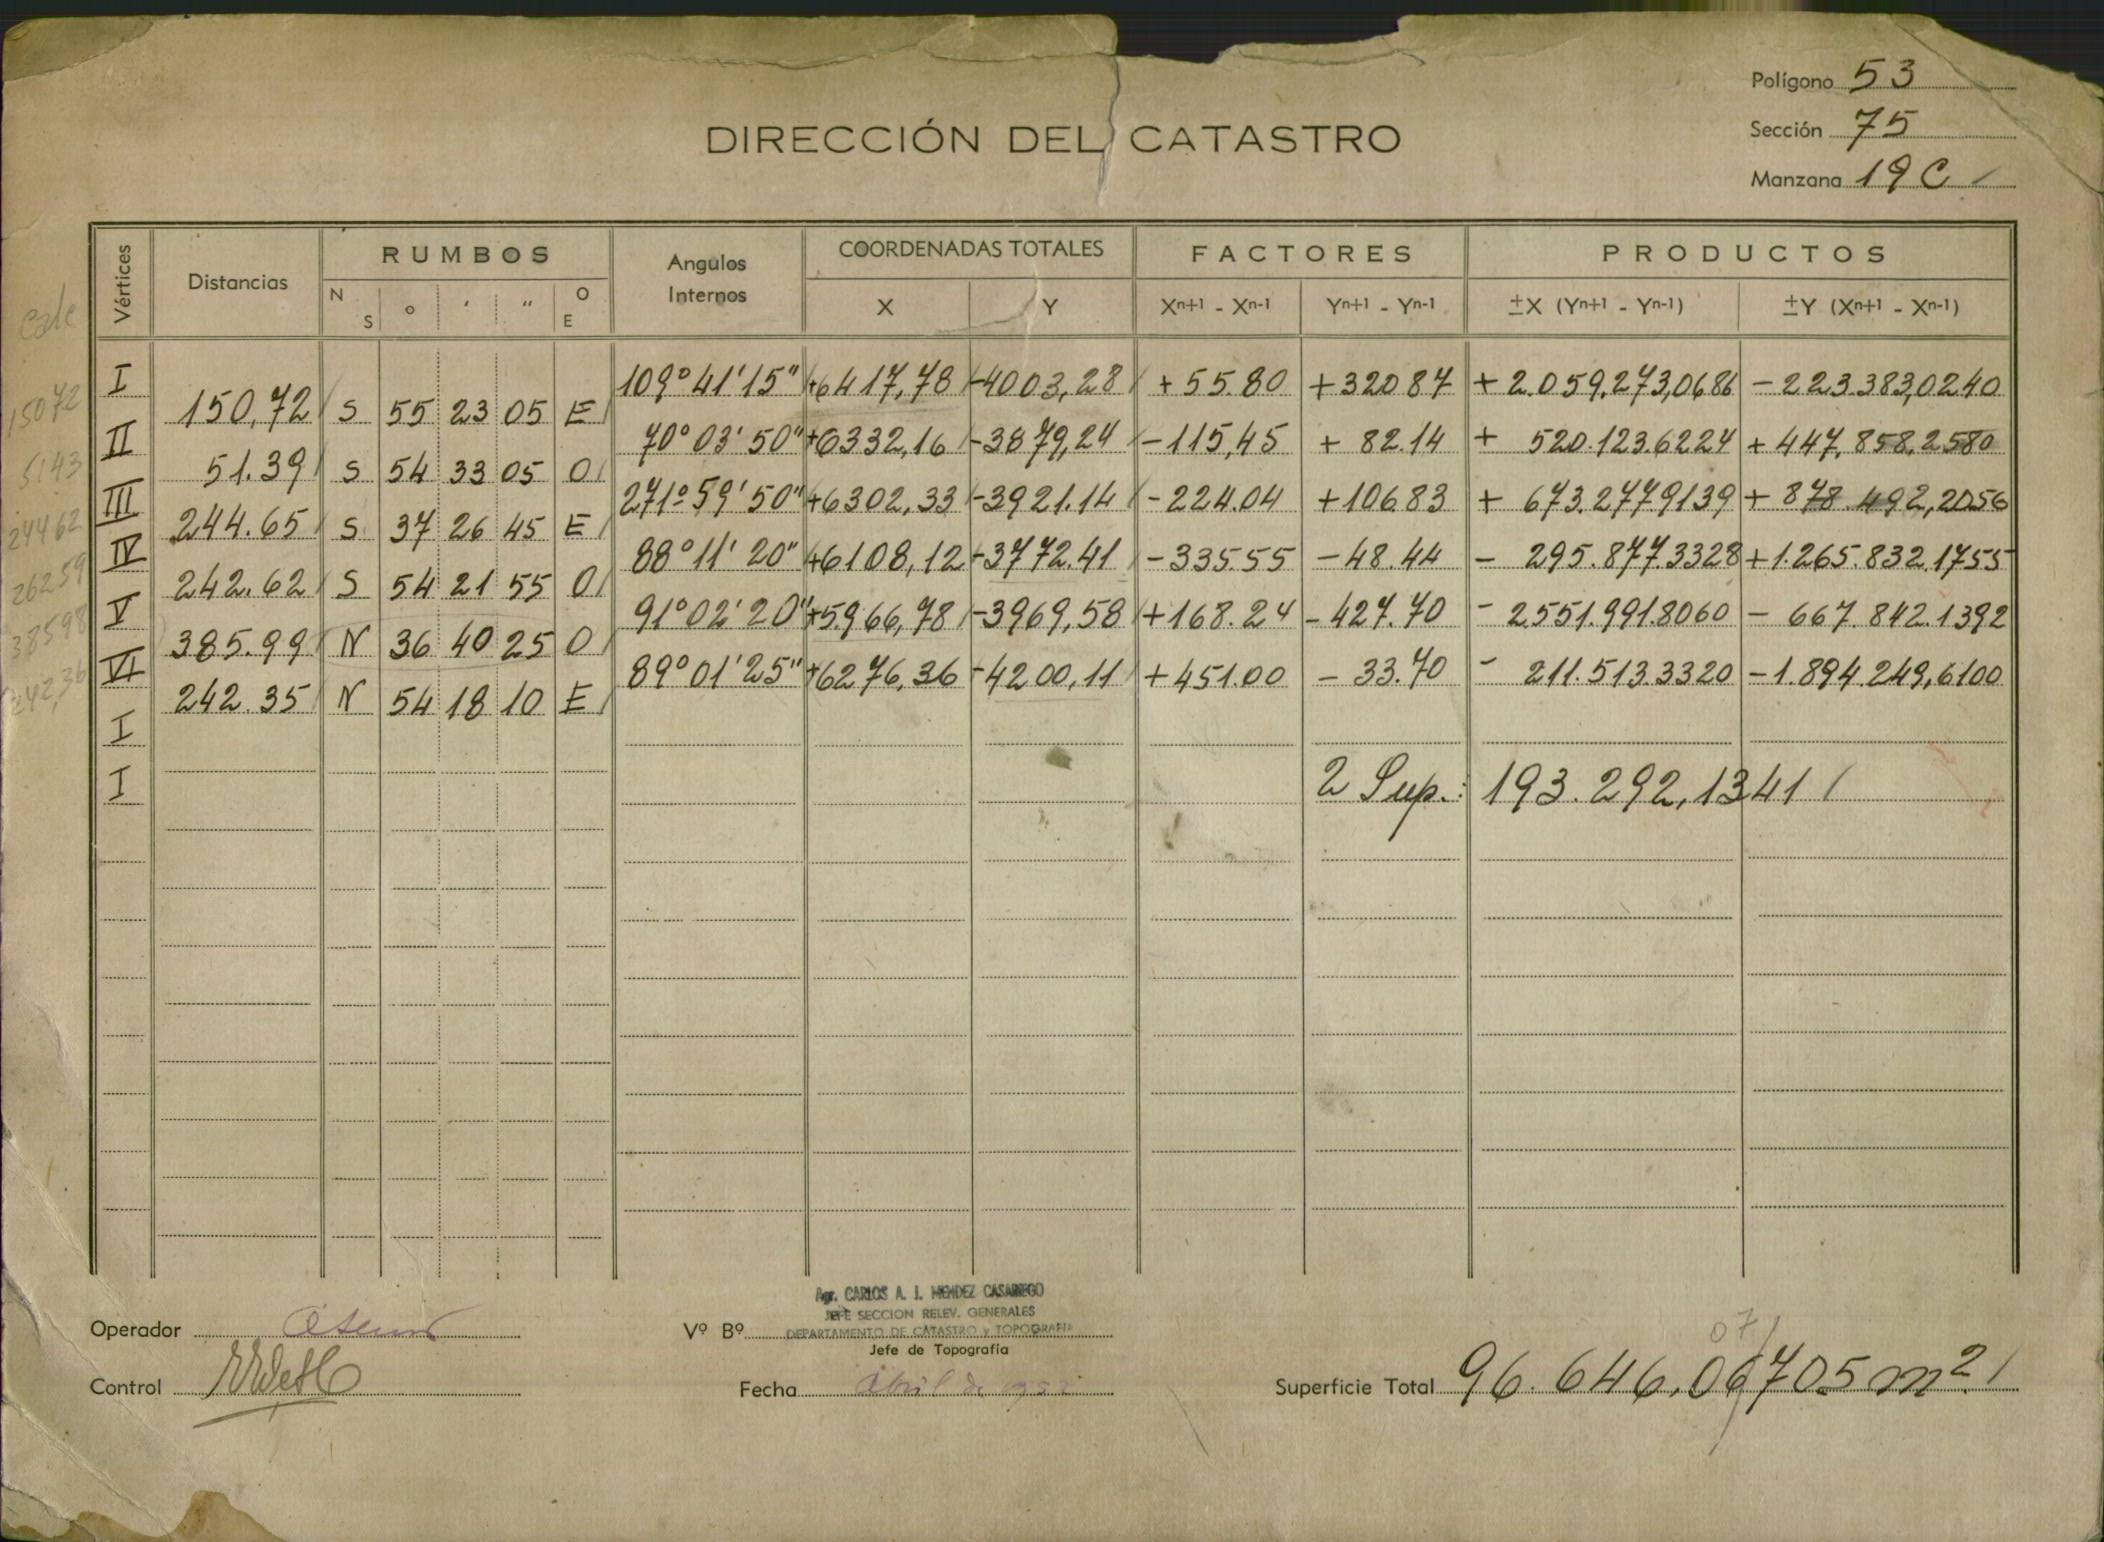 Polígono 53
DIRECCIÓN DEL CATASTRO
Sección 75
Manzana 19 C /
Vértices Distancias RUMBOS Angulos Internos COORDENADAS TOTALES FACTORES PRODUCTOS
N S o ' " O E X Y Xn+1 - Xn-1 Yn+1 - Yn-1 ±X (Yn+1 - Yn-1) ±Y (Xn+1 - Xn-1)
Calc
I 109°41'15" +6417,78 / -4003,28 / +55.80 +320.87 +2.059.273,0686 -223.383,0240
15072 150,72 / S 55 23 05 E /
II 70°03'50" +6332,16 -3879,24 / -115,45 + 82.14 + 520.123.6224 +447.858.2580
5143 51.39 / S 54 33 05 O /
III 271°59'50" +6302,33 -3921.14 / -224.04 +106.83 + 673.277.9139 +878.492,2056
24462 244.65 / S 37 26 45 E /
IV 88°11'20" +6108,12 -3772.41 / -335.55 -48.44 - 295.877.3328 +1.265.832.1755
26259 242.62 / S 54 21 55 O /
V 91°02'20" +5966,78 / -3969,58 / +168.24 -427.70 -2.551.991.8060 - 667.842.1392
38598 385.99 / N 36 40 25 O /
VI 89°01'25" +6276,36 -4200,11 / +451.00 - 33.70 - 211.513.3320 -1.894.249,6100
242,36 242.35 / N 54 18 10 E /
I
I 2 Sup.: 193.292,1341 /
Agr. CARLOS A. I. MENDEZ CASARIEGO
JEFE SECCION RELEV. GENERALES
Operador Vº Bº DEPARTAMENTO DE CATASTRO y TOPOGRAFIA
Jefe de Topografía
07 /
Control Fecha Abril de Superficie Total 96.646,06705 m2. /